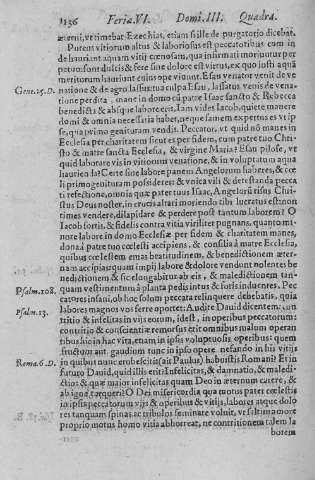 1136 Feria. VI. Domi. III. Quadra.
æterni, ve timebat Ezechias, etiam sille de purgatorio dicebat.
Putent vitiorum altus & laboriosus est peccatoribus cum in
de hauriant aquam vitij cœnosam, qua infirmati moriuntur per
petuo: sunt dulcis & fere sine dolore est virtus, ex quo justi aquā
meritorum haurient
Gene.25.D. natione & de agro lassus: tua culpa Esau, lassatus venis de vena-
tione perdita, mane in domo cū patre Isaac sancto & Rebecca
benedicta & absque labore eres. Iam vides Iacob, quiete manere
domi & omnia necessaria habet, neque famem expertus es vt ip
se, qua primogenituram vendit. Peccator, vt quid nō manes in
Ecclesia per charitatem sicut es per fidem, cum patre tuo Chri-
sto & matre sancta Ecclesia, & virgine Maria? Esau pilose, vt
quid laborare vis in vitiorum venatione, & in voluptatum aqua
haurienda? Certe sine labore panem Angelorum haberes, & cœ
li primogenituram possideres & vnica vili & detestanda pecca
ti refectione, omnia quæ pater tuus Isaac, Angelorū risus Chri-
stus Deus noster, in crucis altari moriendo tibi lucratus est non
times vendere, dilapidare & perdere post tantum laborem? O
Iacob fortis, & fidelis contra vitia viriliter pugnans, quanto mi-
nore labore in domo Ecclesiæ per fidem & charitatem manes,
dona à patre tuo cœlesti accipiens, & consilia à matre Ecclesia,
quibus cœlestem emas beatitudinem, & benedictionem æter-
nam accipias: quam impij labore & dolore vendunt nolentes be
nedictionem & sic elongabitur ab eis, & maledictionem tan-
Psalm.108. quam vestimentum à planta pedis intus & foris induentes. Pec
catores insani, ob hoc solum peccata relinquere debebatis, quia
Psalm.13. labores magnos vos ferre oportet: Audite Dauid dicentem, con
tritio & infelicitas in viis eorum, idest, in operibus peccatorum:
contritio & conscientiæ remorsus erit omnibus malum operan
tibus hic in hac vita, etiam in ipsis voluptuosis operibus: quem
fructum ant. gaudium tunc in ipso opere
Roma.6.D. in quibus nunc erobescitis (ait Paulus) habuistis Romani? Et in
futuro Dauid, quid illis erit? Infelicitas, & damnatio, & maledi-
ctio: & quæ maior infelicitas quam Deo in æternum carere, &
ab igne torqueri? O Dei misericordia qua motus pater cœlestis
in ipsis peccatorum vijs & operibus & vitijs, labores atque dolo
res tanquam spinas ac tribulos seminare voluit, vt saltim amore
proprio motus homo vitia abhorreat, ne contritionem talem la
borem